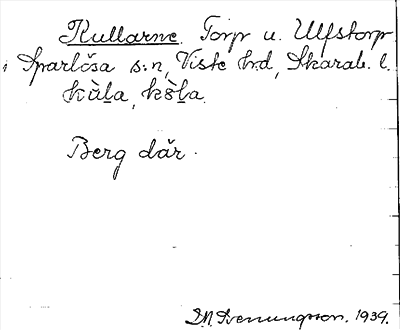 Kullarne. Torp u. Ulfstorp
i Sparlösa s:n, Viste hd, Skarab. l.
kùla, kòla.
Berg där.
D.N. Svennungsson. 1939.